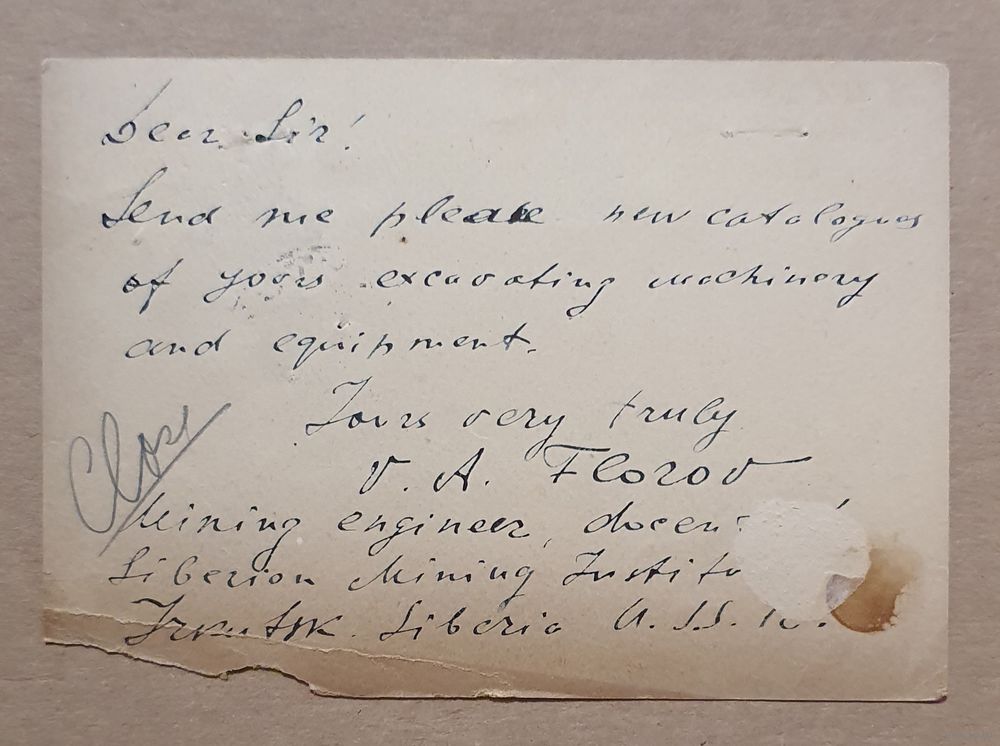 Dear Sir!
Send me please new catalogues
of yours excavating machinery
and equipment.
Yours very truly
V. A. Florov
Mining engineer, docen
Siberian Mining Institu
Irkutsk. Siberia U.S.S.R.
Close